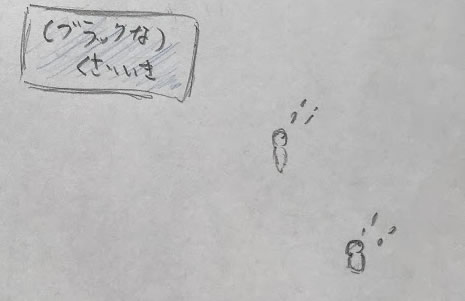 (ブラックな)
くさいいき